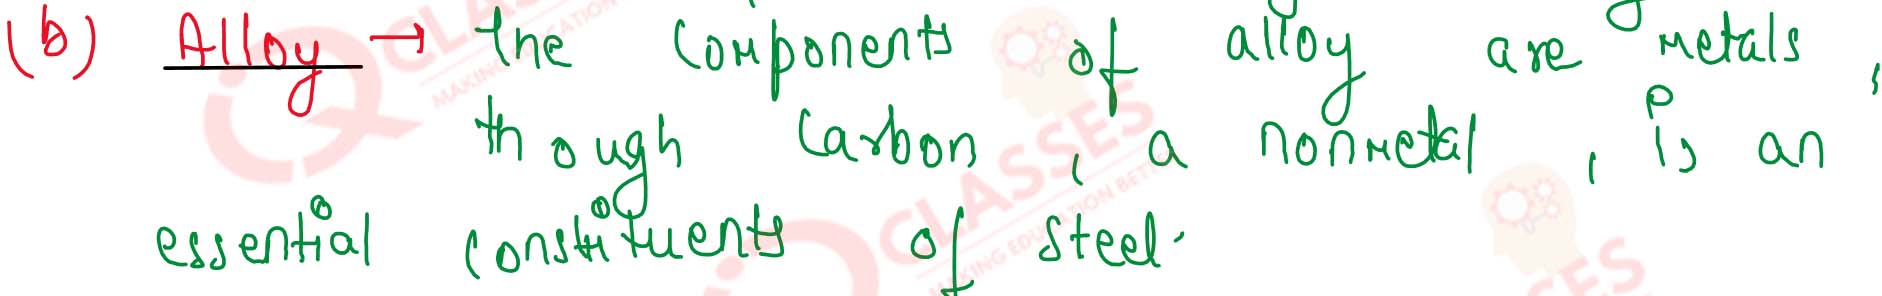 (b) Alloy → The components of alloy are metals,
though carbon, a nonmetal, is an
essential constituents of steel.
IQ CLASSES
MAKING EDUCATION BETTER